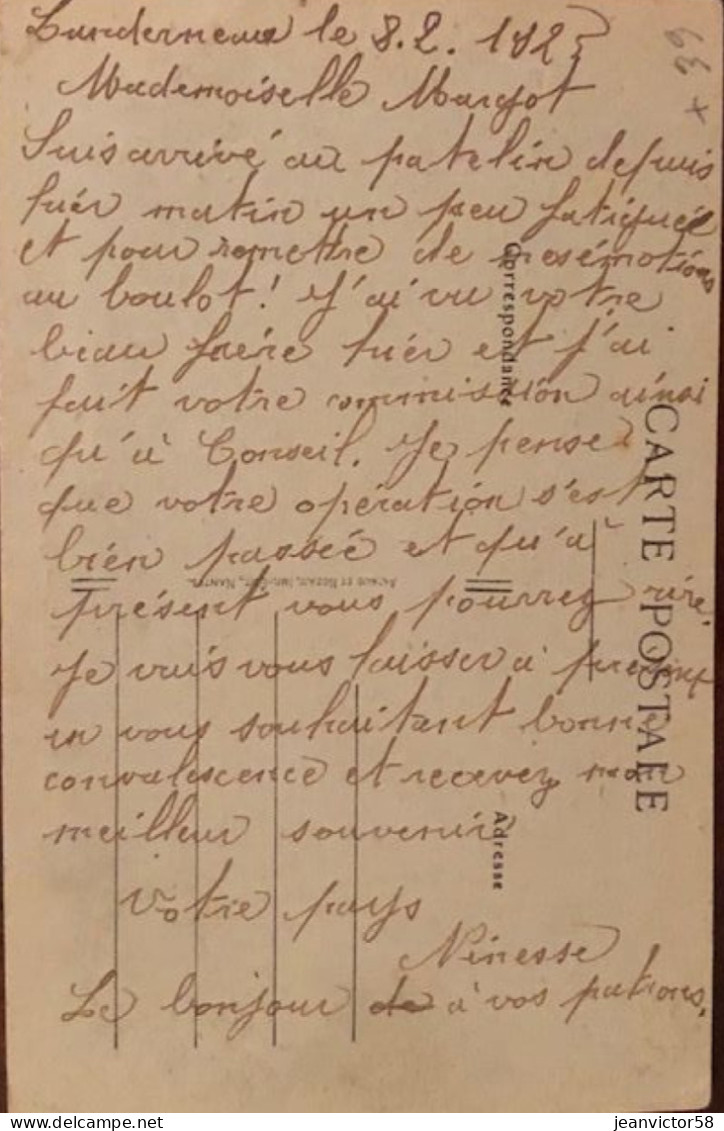 Landerneau le 8.2.192
Mademoiselle Margot
Suis arrivé au patelin depuis
hiér matin un peu fatigué
et pour romettre de mes émotions
au boulot! J'ai vu votre
beau frère hiér et j'ai
fait votre commission ainsi
qu'à Conseil. Je pense
que votre opération s'est
bién passée et qu'à
présent vous pourrez rire.
Je vais vous laisser à présent
en vous souhaitant bonne
convalescence et recevez mon
meilleur souvenir
Votre pays
Ninesse
Le bonjour de à vos patrons.
Correspondance
CARTE POSTALE
Adresse
63 x
jeanvictor58